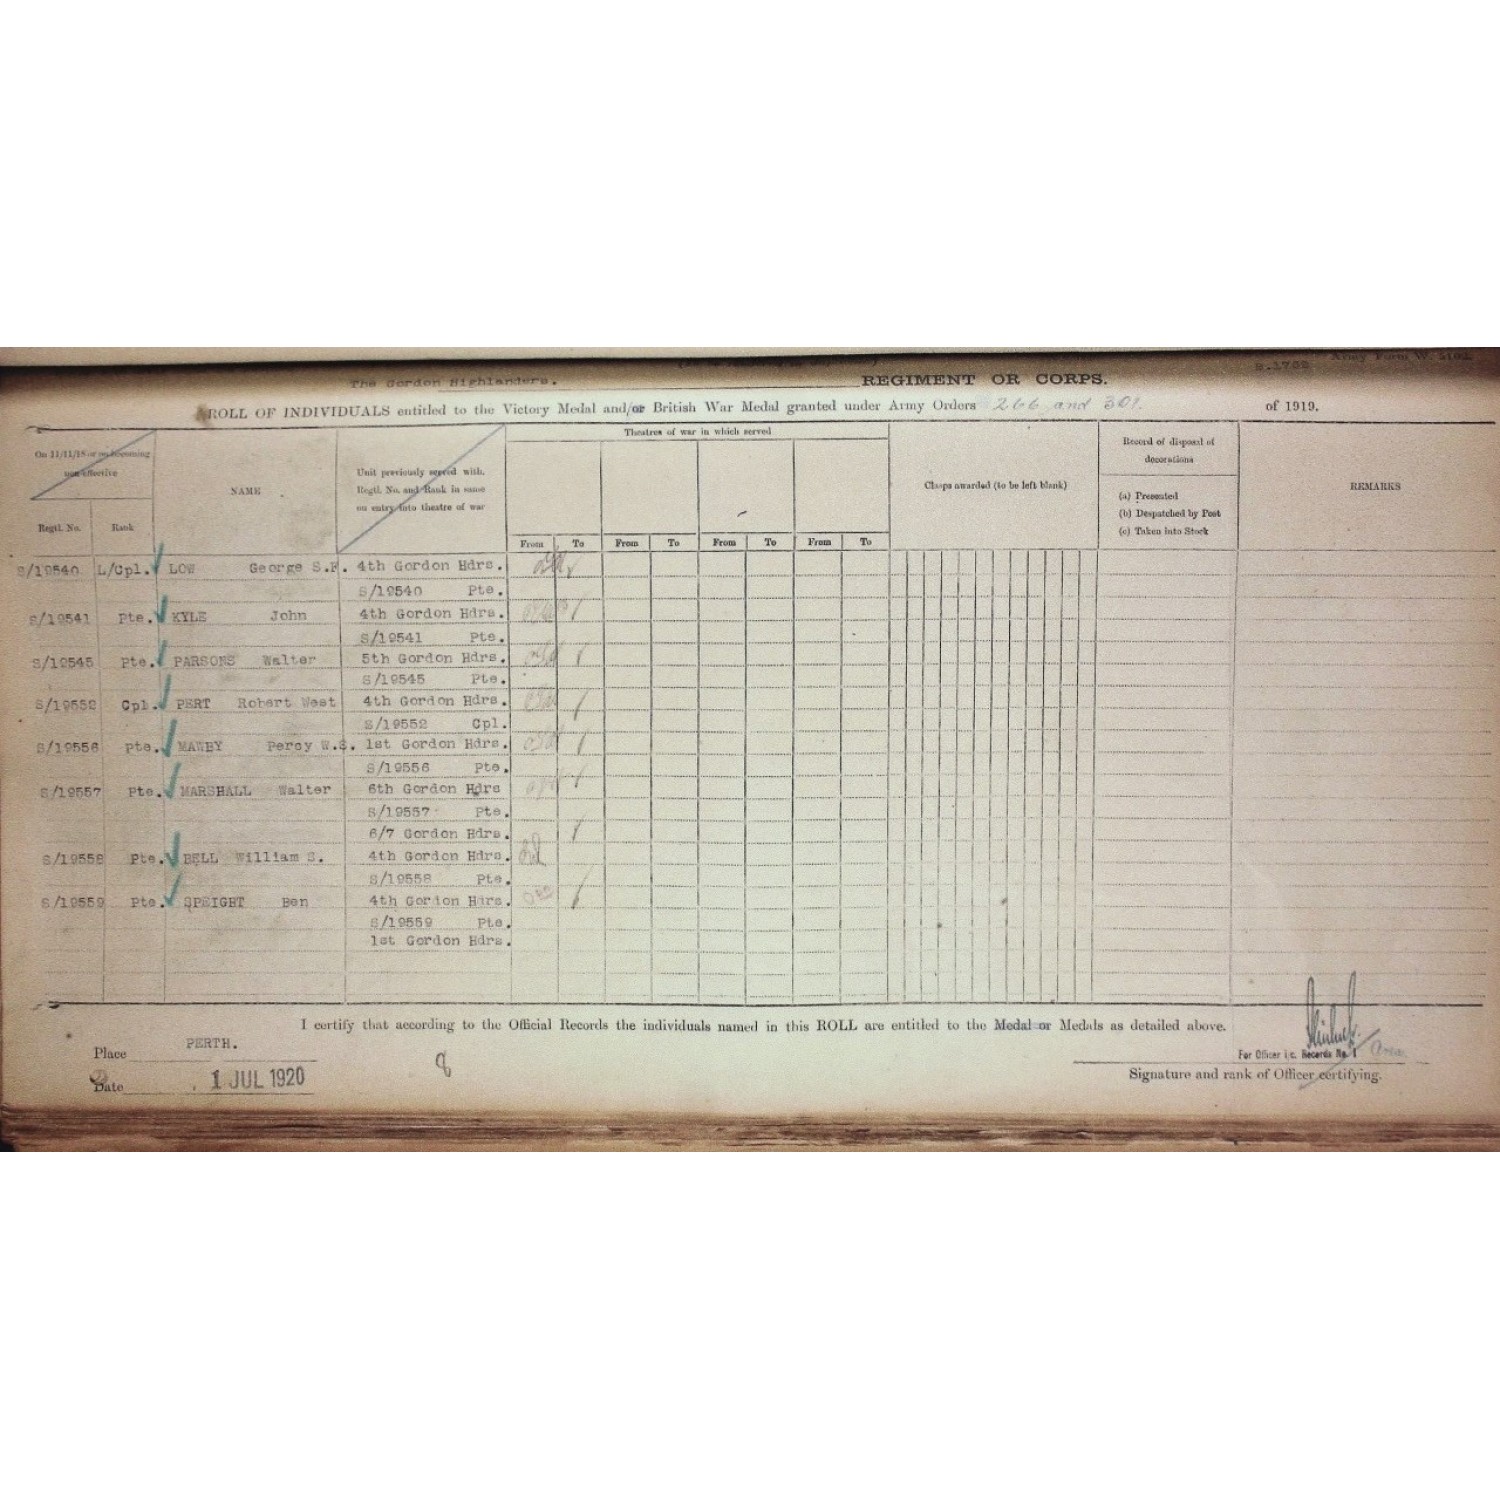 Army Form W. 5101.
The Gordon Highlanders. REGIMENT OR CORPS.
ROLL OF INDIVIDUALS entitled to the Victory Medal and/or British War Medal granted under Army Orders 266 and 301. of 1919.
On 11/11/18 or on becoming
non-effective
Regtl. No.
Rank
NAME
Unit previously served with.
Regtl. No. and Rank in same
on entry into theatre of war
Theatres of war in which served
From To From To From To From To
Clasps awarded (to be left blank)
Record of disposal of
decorations
(a) Presented
(b) Despatched by Post
(c) Taken into Stock
REMARKS
S/19540 L/Cpl. LOW George S.F. 4th Gordon Hdrs.
S/19540 Pte.
S/19541 Pte. KYLE John 4th Gordon Hdrs.
S/19541 Pte.
S/19545 Pte. PARSONS Walter 5th Gordon Hdrs.
S/19545 Pte.
S/19552 Cpl. PERT Robert West 4th Gordon Hdrs.
S/19552 Cpl.
S/19556 Pte. MAWBY Percy W.S. 1st Gordon Hdrs.
S/19556 Pte.
S/19557 Pte. MARSHALL Walter 6th Gordon Hdrs
S/19557 Pte.
6/7 Gordon Hdrs.
S/19558 Pte. BELL William S. 4th Gordon Hdrs.
S/19558 Pte.
S/19559 Pte. SPEIGHT Ben 4th Gordon Hdrs.
S/19559 Pte.
1st Gordon Hdrs.
I certify that according to the Official Records the individuals named in this ROLL are entitled to the Medal or Medals as detailed above.
Place PERTH.
Date 1 JUL 1920
8
For Officer i/c. Records No. 1 Area
Signature and rank of Officer certifying.